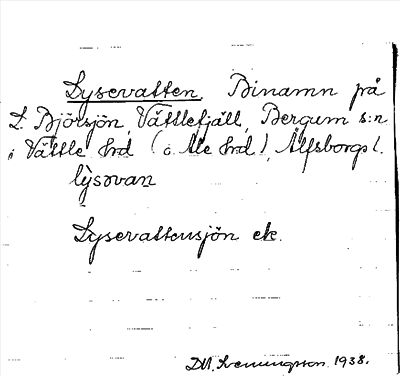 Lysevatten, Binamn på
L. Björsjön, Vättlefjäll, Bergum s:n
i Vättle hrd (o. Ale hrd), Älfsborgs l.
lỳsəvan
Lysevattensjön ek.
D.M. Svenungsson 1938.